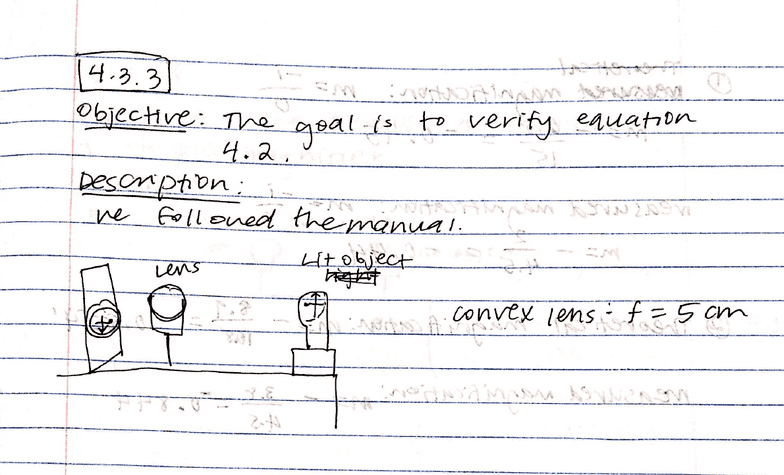 4.3.3
Objective: The goal is to verify equation
4.2.
Description:
we followed the manual.
Lens
Lit object
convex lens: f = 5 cm